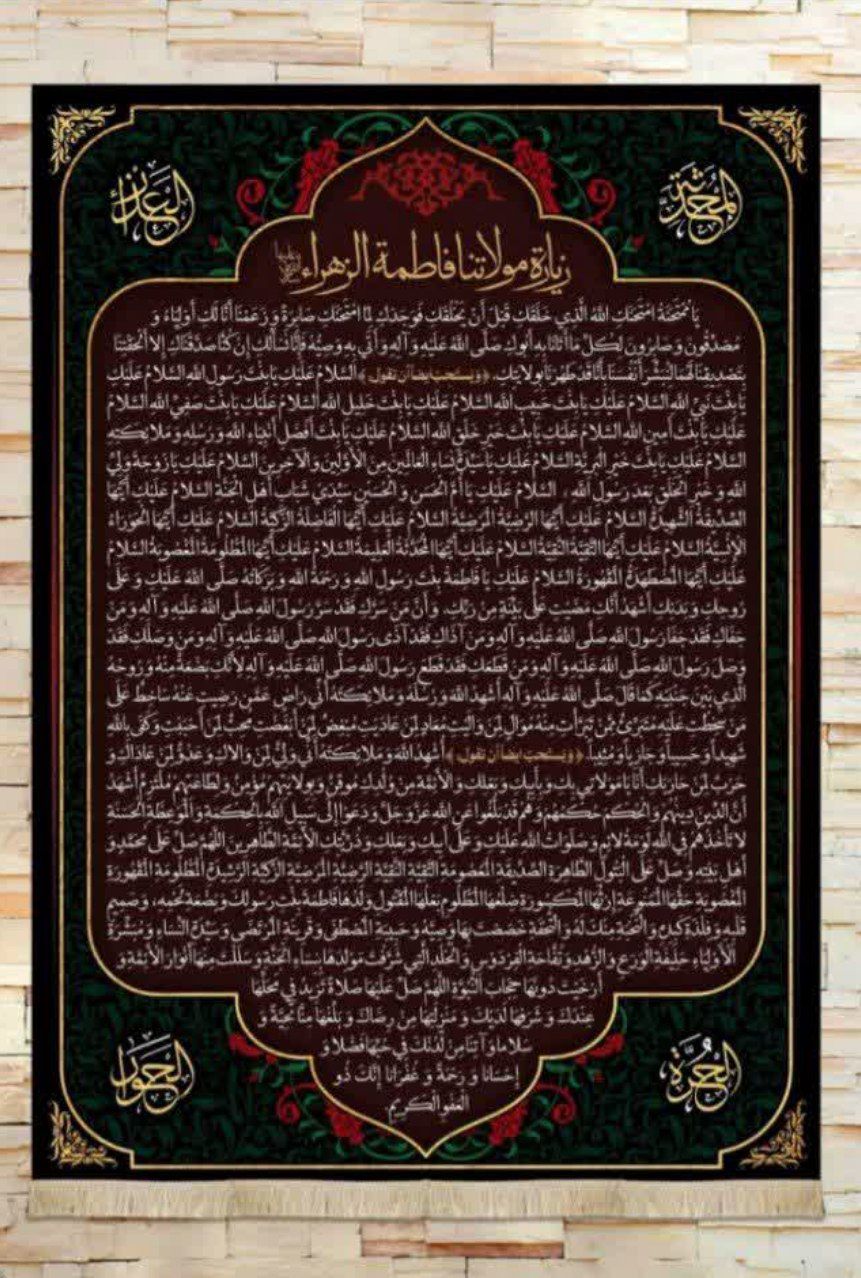 المحدثة
العذراء
زيارة مولاتنا فاطمة الزهراء
يَا مُمْتَحَنَةُ امْتَحَنَكِ اللهُ الَّذِي خَلَقَكِ قَبْلَ أَنْ يَخْلُقَكِ فَوَجَدَكِ لِمَا امْتَحَنَكِ صَابِرَةً وَ زَعَمْنَا أَنَّا لَكِ أَوْلِيَاءُ وَ
مُصَدِّقُونَ وَ صَابِرُونَ لِكُلِّ مَا أَتَانَا بِهِ أَبُوكِ صَلَّى اللهُ عَلَيْهِ وَ آلِهِ وَ أَتَى بِهِ وَصِيُّهُ فَإِنَّا نَسْأَلُكِ إِنْ كُنَّا صَدَّقْنَاكِ إِلَّا أَلْحَقْتِنَا
بِتَصْدِيقِنَا لَهُمَا لِنُبَشِّرَ أَنْفُسَنَا بِأَنَّا قَدْ طَهُرْنَا بِوِلَايَتِكِ. ﴿ويستحب أيضا أن تقول﴾ السَّلَامُ عَلَيْكِ يَا بِنْتَ رَسُولِ اللهِ السَّلَامُ عَلَيْكِ
يَا بِنْتَ نَبِيِّ اللهِ السَّلَامُ عَلَيْكِ يَا بِنْتَ حَبِيبِ اللهِ السَّلَامُ عَلَيْكِ يَا بِنْتَ خَلِيلِ اللهِ السَّلَامُ عَلَيْكِ يَا بِنْتَ صَفِيِّ اللهِ السَّلَامُ
عَلَيْكِ يَا بِنْتَ أَمِينِ اللهِ السَّلَامُ عَلَيْكِ يَا بِنْتَ خَيْرِ خَلْقِ اللهِ السَّلَامُ عَلَيْكِ يَا بِنْتَ أَفْضَلِ أَنْبِيَاءِ اللهِ وَ رُسُلِهِ وَ مَلَائِكَتِهِ
السَّلَامُ عَلَيْكِ يَا بِنْتَ خَيْرِ الْبَرِيَّةِ السَّلَامُ عَلَيْكِ يَا سَيِّدَةَ نِسَاءِ الْعَالَمِينَ مِنَ الْأَوَّلِينَ وَ الْآخِرِينَ السَّلَامُ عَلَيْكِ يَا زَوْجَةَ وَلِيِّ
اللهِ وَ خَيْرِ الْخَلْقِ بَعْدَ رَسُولِ اللهِ، السَّلَامُ عَلَيْكِ يَا أُمَّ الْحَسَنِ وَ الْحُسَيْنِ سَيِّدَيْ شَبَابِ أَهْلِ الْجَنَّةِ السَّلَامُ عَلَيْكِ أَيَّتُهَا
الصِّدِّيقَةُ الشَّهِيدَةُ السَّلَامُ عَلَيْكِ أَيَّتُهَا الرَّضِيَّةُ الْمَرْضِيَّةُ السَّلَامُ عَلَيْكِ أَيَّتُهَا الْفَاضِلَةُ الزَّكِيَّةُ السَّلَامُ عَلَيْكِ أَيَّتُهَا الْحَوْرَاءُ
الْإِنْسِيَّةُ السَّلَامُ عَلَيْكِ أَيَّتُهَا التَّقِيَّةُ النَّقِيَّةُ السَّلَامُ عَلَيْكِ أَيَّتُهَا الْمُحَدَّثَةُ الْعَلِيمَةُ السَّلَامُ عَلَيْكِ أَيَّتُهَا الْمَظْلُومَةُ الْمَغْصُوبَةُ السَّلَامُ
عَلَيْكِ أَيَّتُهَا الْمُضْطَهَدَةُ الْمَقْهُورَةُ السَّلَامُ عَلَيْكِ يَا فَاطِمَةُ بِنْتَ رَسُولِ اللهِ وَ رَحْمَةُ اللهِ وَ بَرَكَاتُهُ صَلَّى اللهُ عَلَيْكِ وَ عَلَى
رُوحِكِ وَ بَدَنِكِ أَشْهَدُ أَنَّكِ مَضَيْتِ عَلَى بَيِّنَةٍ مِنْ رَبِّكِ وَ أَنَّ مَنْ سَرَّكِ فَقَدْ سَرَّ رَسُولَ اللهِ صَلَّى اللهُ عَلَيْهِ وَ آلِهِ وَ مَنْ
جَفَاكِ فَقَدْ جَفَا رَسُولَ اللهِ صَلَّى اللهُ عَلَيْهِ وَ آلِهِ وَ مَنْ آذَاكِ فَقَدْ آذَى رَسُولَ اللهِ صَلَّى اللهُ عَلَيْهِ وَ آلِهِ وَ مَنْ وَصَلَكِ فَقَدْ
وَصَلَ رَسُولَ اللهِ صَلَّى اللهُ عَلَيْهِ وَ آلِهِ وَ مَنْ قَطَعَكِ فَقَدْ قَطَعَ رَسُولَ اللهِ صَلَّى اللهُ عَلَيْهِ وَ آلِهِ لِأَنَّكِ بَضْعَةٌ مِنْهُ وَ رُوحُهُ
الَّذِي بَيْنَ جَنْبَيْهِ كَمَا قَالَ صَلَّى اللهُ عَلَيْهِ وَ آلِهِ أُشْهِدُ اللهَ وَ رُسُلَهُ وَ مَلَائِكَتَهُ أَنِّي رَاضٍ عَمَّنْ رَضِيتِ عَنْهُ سَاخِطٌ عَلَى
مَنْ سَخِطْتِ عَلَيْهِ مُتَبَرِّئٌ مِمَّنْ تَبَرَّأْتِ مِنْهُ مُوَالٍ لِمَنْ وَالَيْتِ مُعَادٍ لِمَنْ عَادَيْتِ مُبْغِضٌ لِمَنْ أَبْغَضْتِ مُحِبٌّ لِمَنْ أَحْبَبْتِ وَ كَفَى بِاللهِ
شَهِيداً وَ حَسِيباً وَ جَازِياً وَ مُثِيباً. ﴿ويستحب أيضا أن تقول﴾ أُشْهِدُ اللهَ وَ مَلَائِكَتَهُ أَنِّي وَلِيٌّ لِمَنْ وَالَاكِ وَ عَدُوٌّ لِمَنْ عَادَاكِ وَ
حَرْبٌ لِمَنْ حَارَبَكِ أَنَا يَا مَوْلَاتِي بِكِ وَ بِأَبِيكِ وَ بَعْلِكِ وَ الْأَئِمَّةِ مِنْ وُلْدِكِ مُوقِنٌ وَ بِوِلَايَتِهِمْ مُؤْمِنٌ وَ لِطَاعَتِهِمْ مُلْتَزِمٌ أَشْهَدُ
أَنَّ الدِّينَ دِينُهُمْ وَ الْحُكْمَ حُكْمُهُمْ وَ هُمْ قَدْ بَلَّغُوا عَنِ اللهِ عَزَّ وَ جَلَّ وَ دَعَوْا إِلَى سَبِيلِ اللهِ بِالْحِكْمَةِ وَ الْمَوْعِظَةِ الْحَسَنَةِ
لَا تَأْخُذُهُمْ فِي اللهِ لَوْمَةُ لَائِمٍ وَ صَلَوَاتُ اللهِ عَلَيْكِ وَ عَلَى أَبِيكِ وَ بَعْلِكِ وَ ذُرِّيَّتِكِ الْأَئِمَّةِ الطَّاهِرِينَ اللَّهُمَّ صَلِّ عَلَى مُحَمَّدٍ وَ
أَهْلِ بَيْتِهِ وَ صَلِّ عَلَى الْبَتُولِ الطَّاهِرَةِ الصِّدِّيقَةِ الْمَعْصُومَةِ التَّقِيَّةِ النَّقِيَّةِ الرَّضِيَّةِ الْمَرْضِيَّةِ الزَّكِيَّةِ الرَّشِيدَةِ الْمَظْلُومَةِ الْمَقْهُورَةِ
الْمَغْصُوبَةِ حَقُّهَا الْمَمْنُوعَةِ إِرْثُهَا الْمَكْسُورَةِ ضِلْعُهَا الْمَظْلُومِ بَعْلُهَا الْمَقْتُولِ وَلَدُهَا فَاطِمَةَ بِنْتِ رَسُولِكَ وَ بَضْعَةِ لَحْمِهِ، وَ صَمِيمِ
قَلْبِهِ وَ فِلْذَةِ كَبِدِهِ وَ النُّخْبَةِ مِنْكَ لَهُ وَ التُّحْفَةِ خَصَصْتَ بِهَا وَصِيَّهُ وَ حَبِيبَةِ الْمُصْطَفَى وَ قَرِينَةِ الْمُرْتَضَى وَ سَيِّدَةِ النِّسَاءِ وَ مُبَشِّرَةِ
الْأَوْلِيَاءِ حَلِيفَةِ الْوَرَعِ وَ الزُّهْدِ وَ تُفَّاحَةِ الْفِرْدَوْسِ وَ الْخُلْدِ الَّتِي شَرَّفْتَ مَوْلِدَهَا بِنِسَاءِ الْجَنَّةِ وَ سَلَلْتَ مِنْهَا أَنْوَارَ الْأَئِمَّةِ وَ
أَرْخَيْتَ دُونَهَا حِجَابَ النُّبُوَّةِ اللَّهُمَّ صَلِّ عَلَيْهَا صَلَاةً تَزِيدُ فِي مَحَلِّهَا
عِنْدَكَ وَ شَرَفِهَا لَدَيْكَ وَ مَنْزِلَتِهَا مِنْ رِضَاكَ وَ بَلِّغْهَا مِنَّا تَحِيَّةً وَ
سَلَاماً وَ آتِنَا مِنْ لَدُنْكَ فِي حُبِّهَا فَضْلًا وَ
إِحْسَانًا وَ رَحْمَةً وَ غُفْرَانًا إِنَّكَ ذُو
الْعَفْوِ الْكَرِيمِ
الحُرَّة
الحوراء